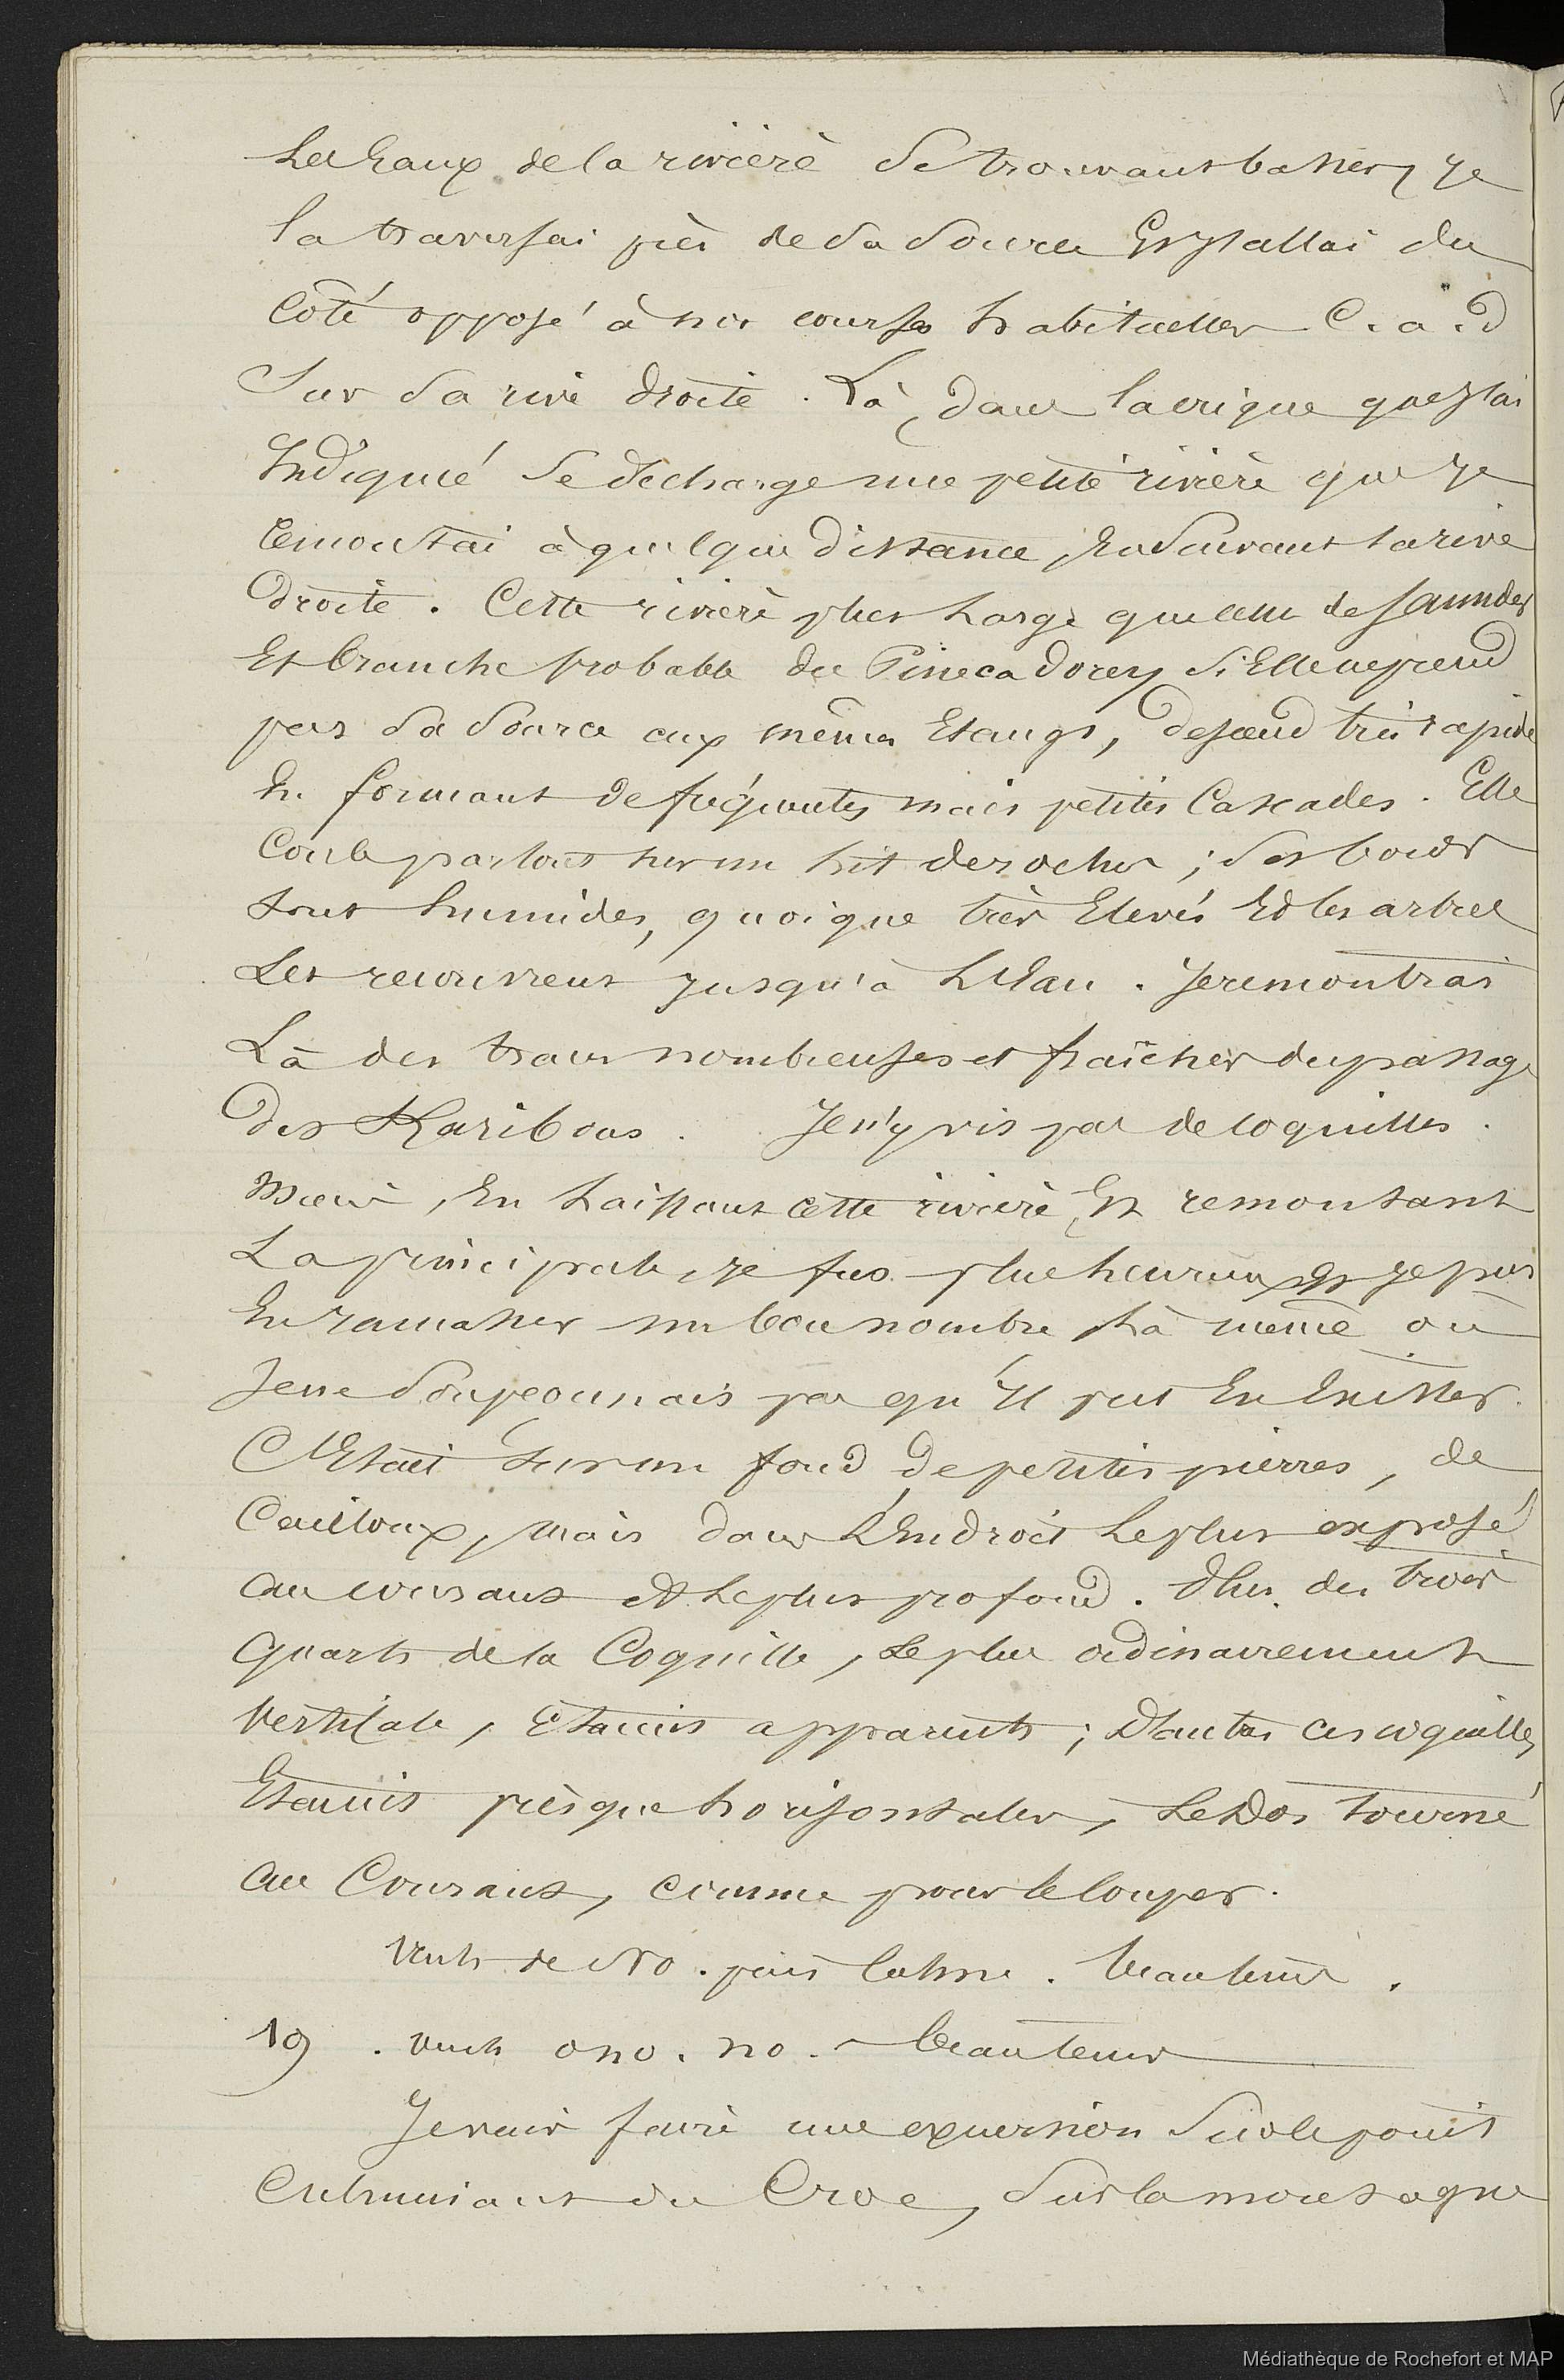 Les Eaux de la rivière se trouvant basses, je
la traversai près de sa source Et j'allai du
Côté opposé à nos courses habituelles C. a. d
Sur sa rive droite. Là, dans la crique que j'ai
Indiqué se décharge une petite rivière que je
remontai à quelque distance, En suivant sa rive
droite. Cette rivière plus Large que celle de
Et branche probable du Pineca Dorey si Elle ne prend
pas sa source aux mêmes Etangs, descend très rapide
En formant de fréquentes mais petites Cascades. Elle
Coule partout sur un Lit de roches ; ses bords
sont humides, quoique très Elevés Et les arbres
Les recouvrent jusqu'à L'Eau. Je
Là des traces nombreuses et fraîches du passage
des Karibous. Je n'y vis pas de coquilles.
Mais, En Laissant cette rivière, Et remontant
La principale, je fus plus heureux Et je pus
En ramasser un bon nombre Là même où
Je ne soupçonnais pas qu'il put En Exister.
C'Etait sur un fond de petites pierres, de
Cailloux, mais dans L'Endroit Le plus exposé
au courant et Le plus profond. Plus des trois
quarts de la Coquille, Le plus ordinairement
Verticale, Etaient apparents ; D'autres ces coquilles
Etaient presque horisontales, Le Dos tourné
au Courant, comme pour le couper.
Vents de NO. puis Calme. Beau tems.
19. Vents ONO. NO. Beau tems
Je vais faire une excursion sur le point
Culminant du Croc, sur la montagne
Médiathèque de Rochefort et MAP